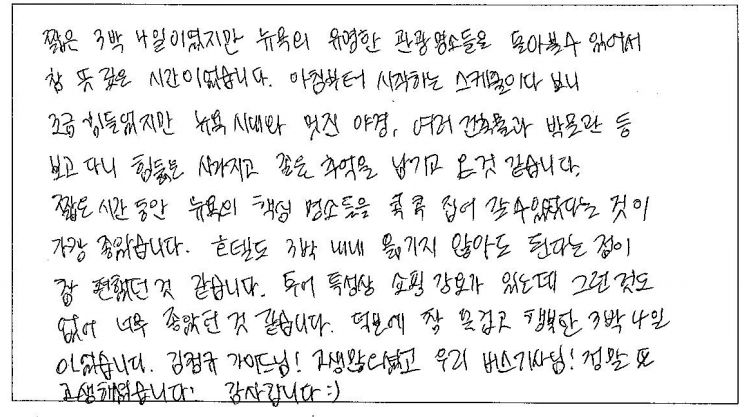 짧은 3박 4일이였지만 뉴욕의 유명한 관광명소들을 돌아볼수 있어서
참 뜻 깊은 시간이였습니다. 아침부터 시작하는 스케줄이다 보니
조금 힘들었지만 뉴욕 시내와 멋진 야경, 여러 건축물과 박물관 등
보고 다니 힘듦은 사라지고 좋은 추억을 남기고 온것 같습니다.
짧은 시간 동안 뉴욕의 핵심 명소들을 콕콕 집어 갈수있었다는 것이
가장 좋았습니다. 호텔도 3박 내내 옮기지 않아도 된다는 점이
참 편했던 것 같습니다. 투어 특성상 쇼핑 강요가 있는데 그런 것도
없어 너무 좋았던 것 같습니다. 덕분에 참 즐겁고 행복한 3박 4일
이였습니다. 가이드님! 고생많으셨고 우리 버스기사님! 정말 또
고생하셨습니다! 감사합니다 :)